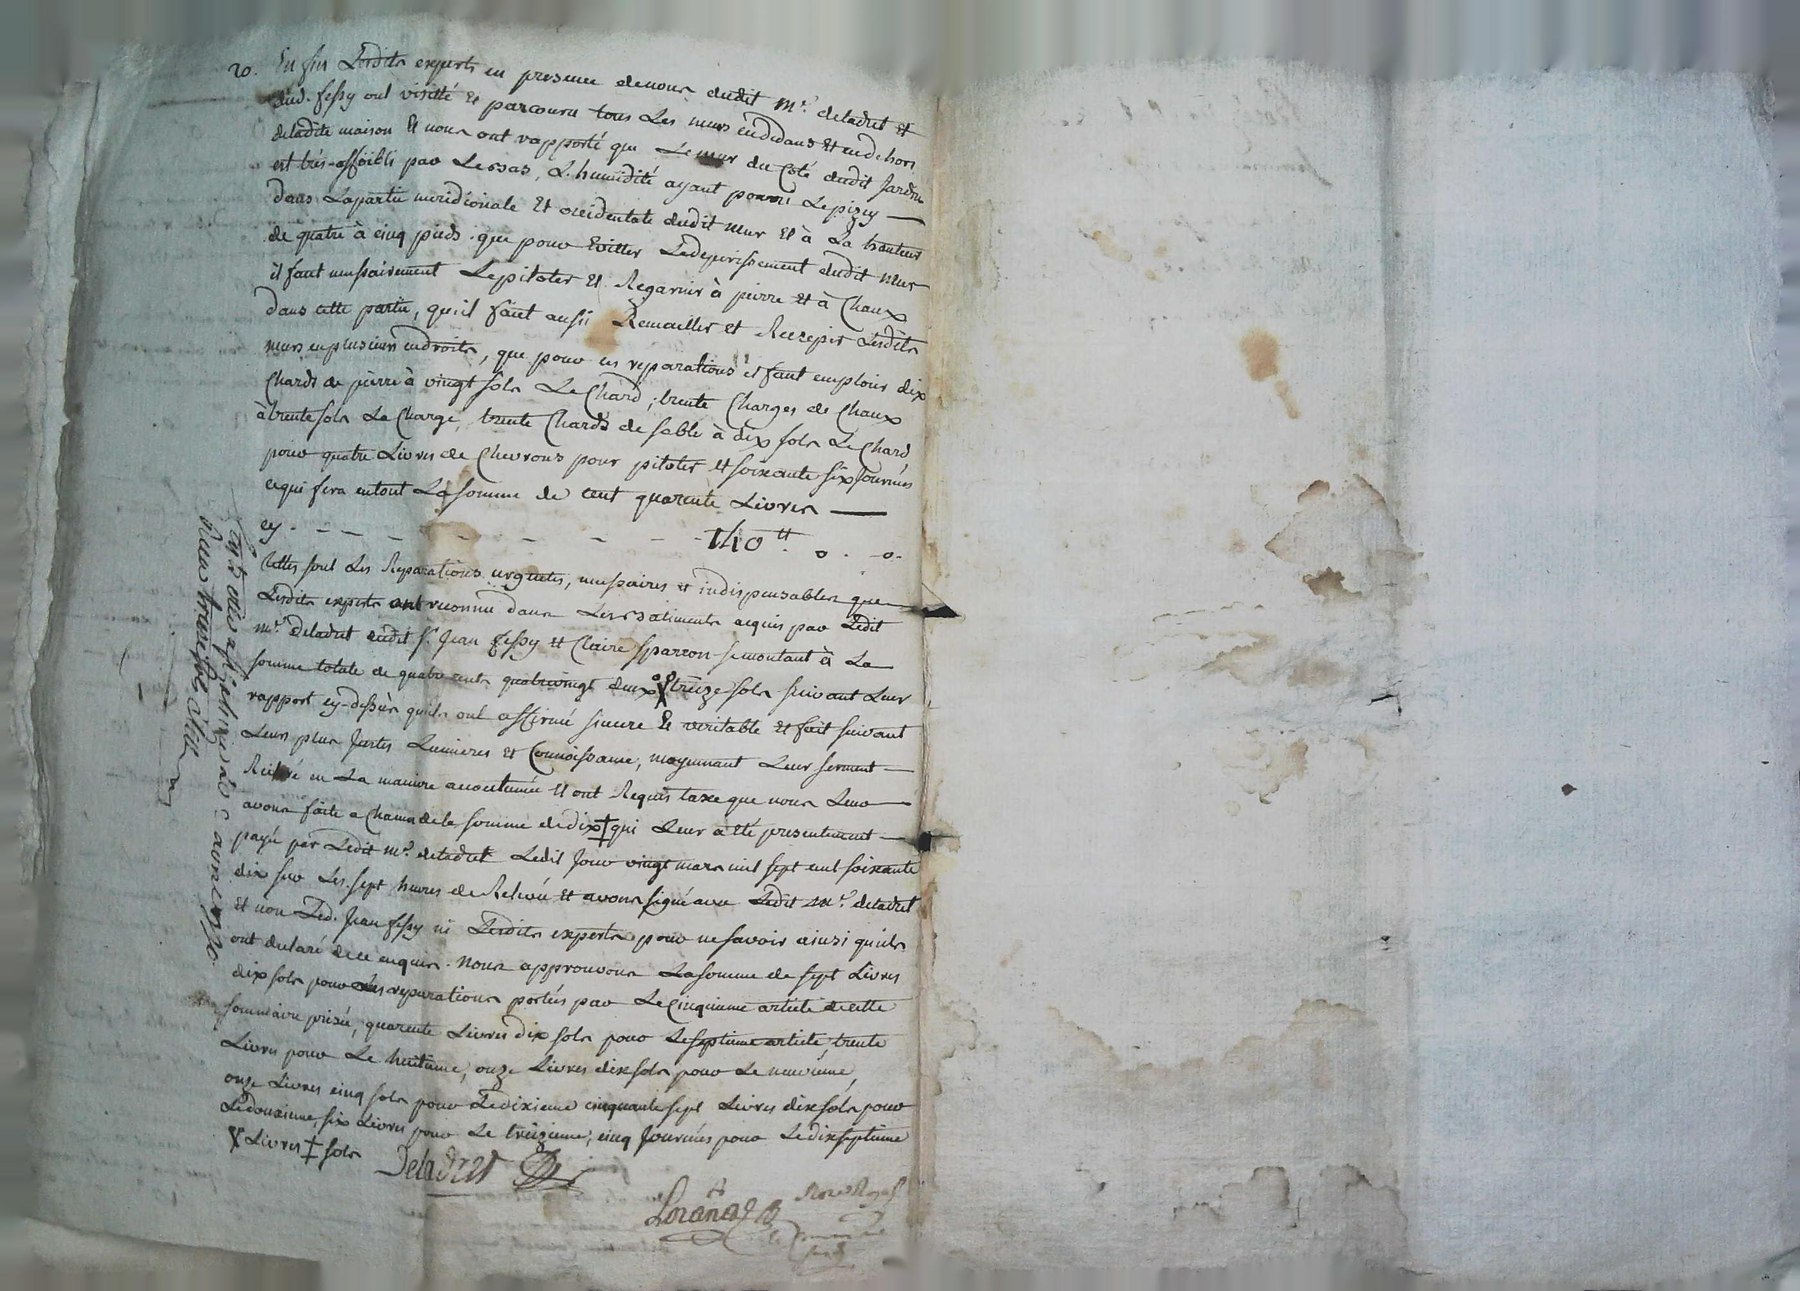 20. En fin Lesdits experts en presence denous dudit Mr. deladret et
dud. fessy ont visitté et parcouru tous Les murs endedans et endehors
deladite maison et nous ont rapporté que Le mur du Coté dudit Jardin
est très-affoibli par L'humidité ayant pourri Lepizey
dans Lapartie méridionale et occidentale dudit mur et à La hauteur
de quatre à cinq pieds. que pour Eviter Ledeperissement dudit mur
il faut necessairement Lepiloter et Regarnir à pierre et à Chaux
dans cette partie, qu'il faut aussi Remailler et Recrepir Lesdits
murs enplusieurs endroits, que pour ces reparations il faut emploier dix
Chards de pierre à vingt sols Le Chard; trente Charges de Chaux
à trente sols La Charge, trente Chards de sable à dix sols Le Chard
pour quatre Livres de Chevrons pour piloter et soixante six Journées
cequi fera entout La somme de cent quarente Livres
cy. - - - - - - - 140tt. o. -o-
telles sont Les Reparations urgentes, necessaires et indispensables que
Lesdits experts ont reconnu dans Les batiments acquis par Ledit
Mr. deladret dudit Sr. Jean fessy et Claire sparron se montant à La
somme totale de quatre cents quatrevingt deux treize sols suivant Leur
rapport cy-dessus quils ont affirmé sincere et veritable et fait suivant
Leurs plus Justes Lumieres et Connoissance, moyennant Leur serment
Reiteré en La maniere accoutumée et ont Requis taxe que nous Leur
avons faite a Chacun de la somme de dix † qui Leur a été presentement
payé par Ledit Mr. deladret Ledit Jour vingt mars mil sept cent soixante
dix sur Les sept heures de Relevée et avons signé avec Ledit Mr. deladret
et non Led. Jean fessy ni Lesdits experts pour ne savoir ainsi quils
ont declaré de ce enquis. Nous approuvons La somme de sept Livres
dix sols pour les reparations portées par Le Cinquieme article de cette
sommaire prisée, quarente Livres dix sols pour Le septieme article, trente
Livres pour Le huitieme, onze Livres dix sols pour Le neuvieme,
onze Livres cinq sols pour Ledixieme cinquante sept Livres dix sols pour
Ledouzieme, six Livres pour Le treizieme, cinq Journées pour Ledixseptieme
Livres † sols
Deladret
Loranas